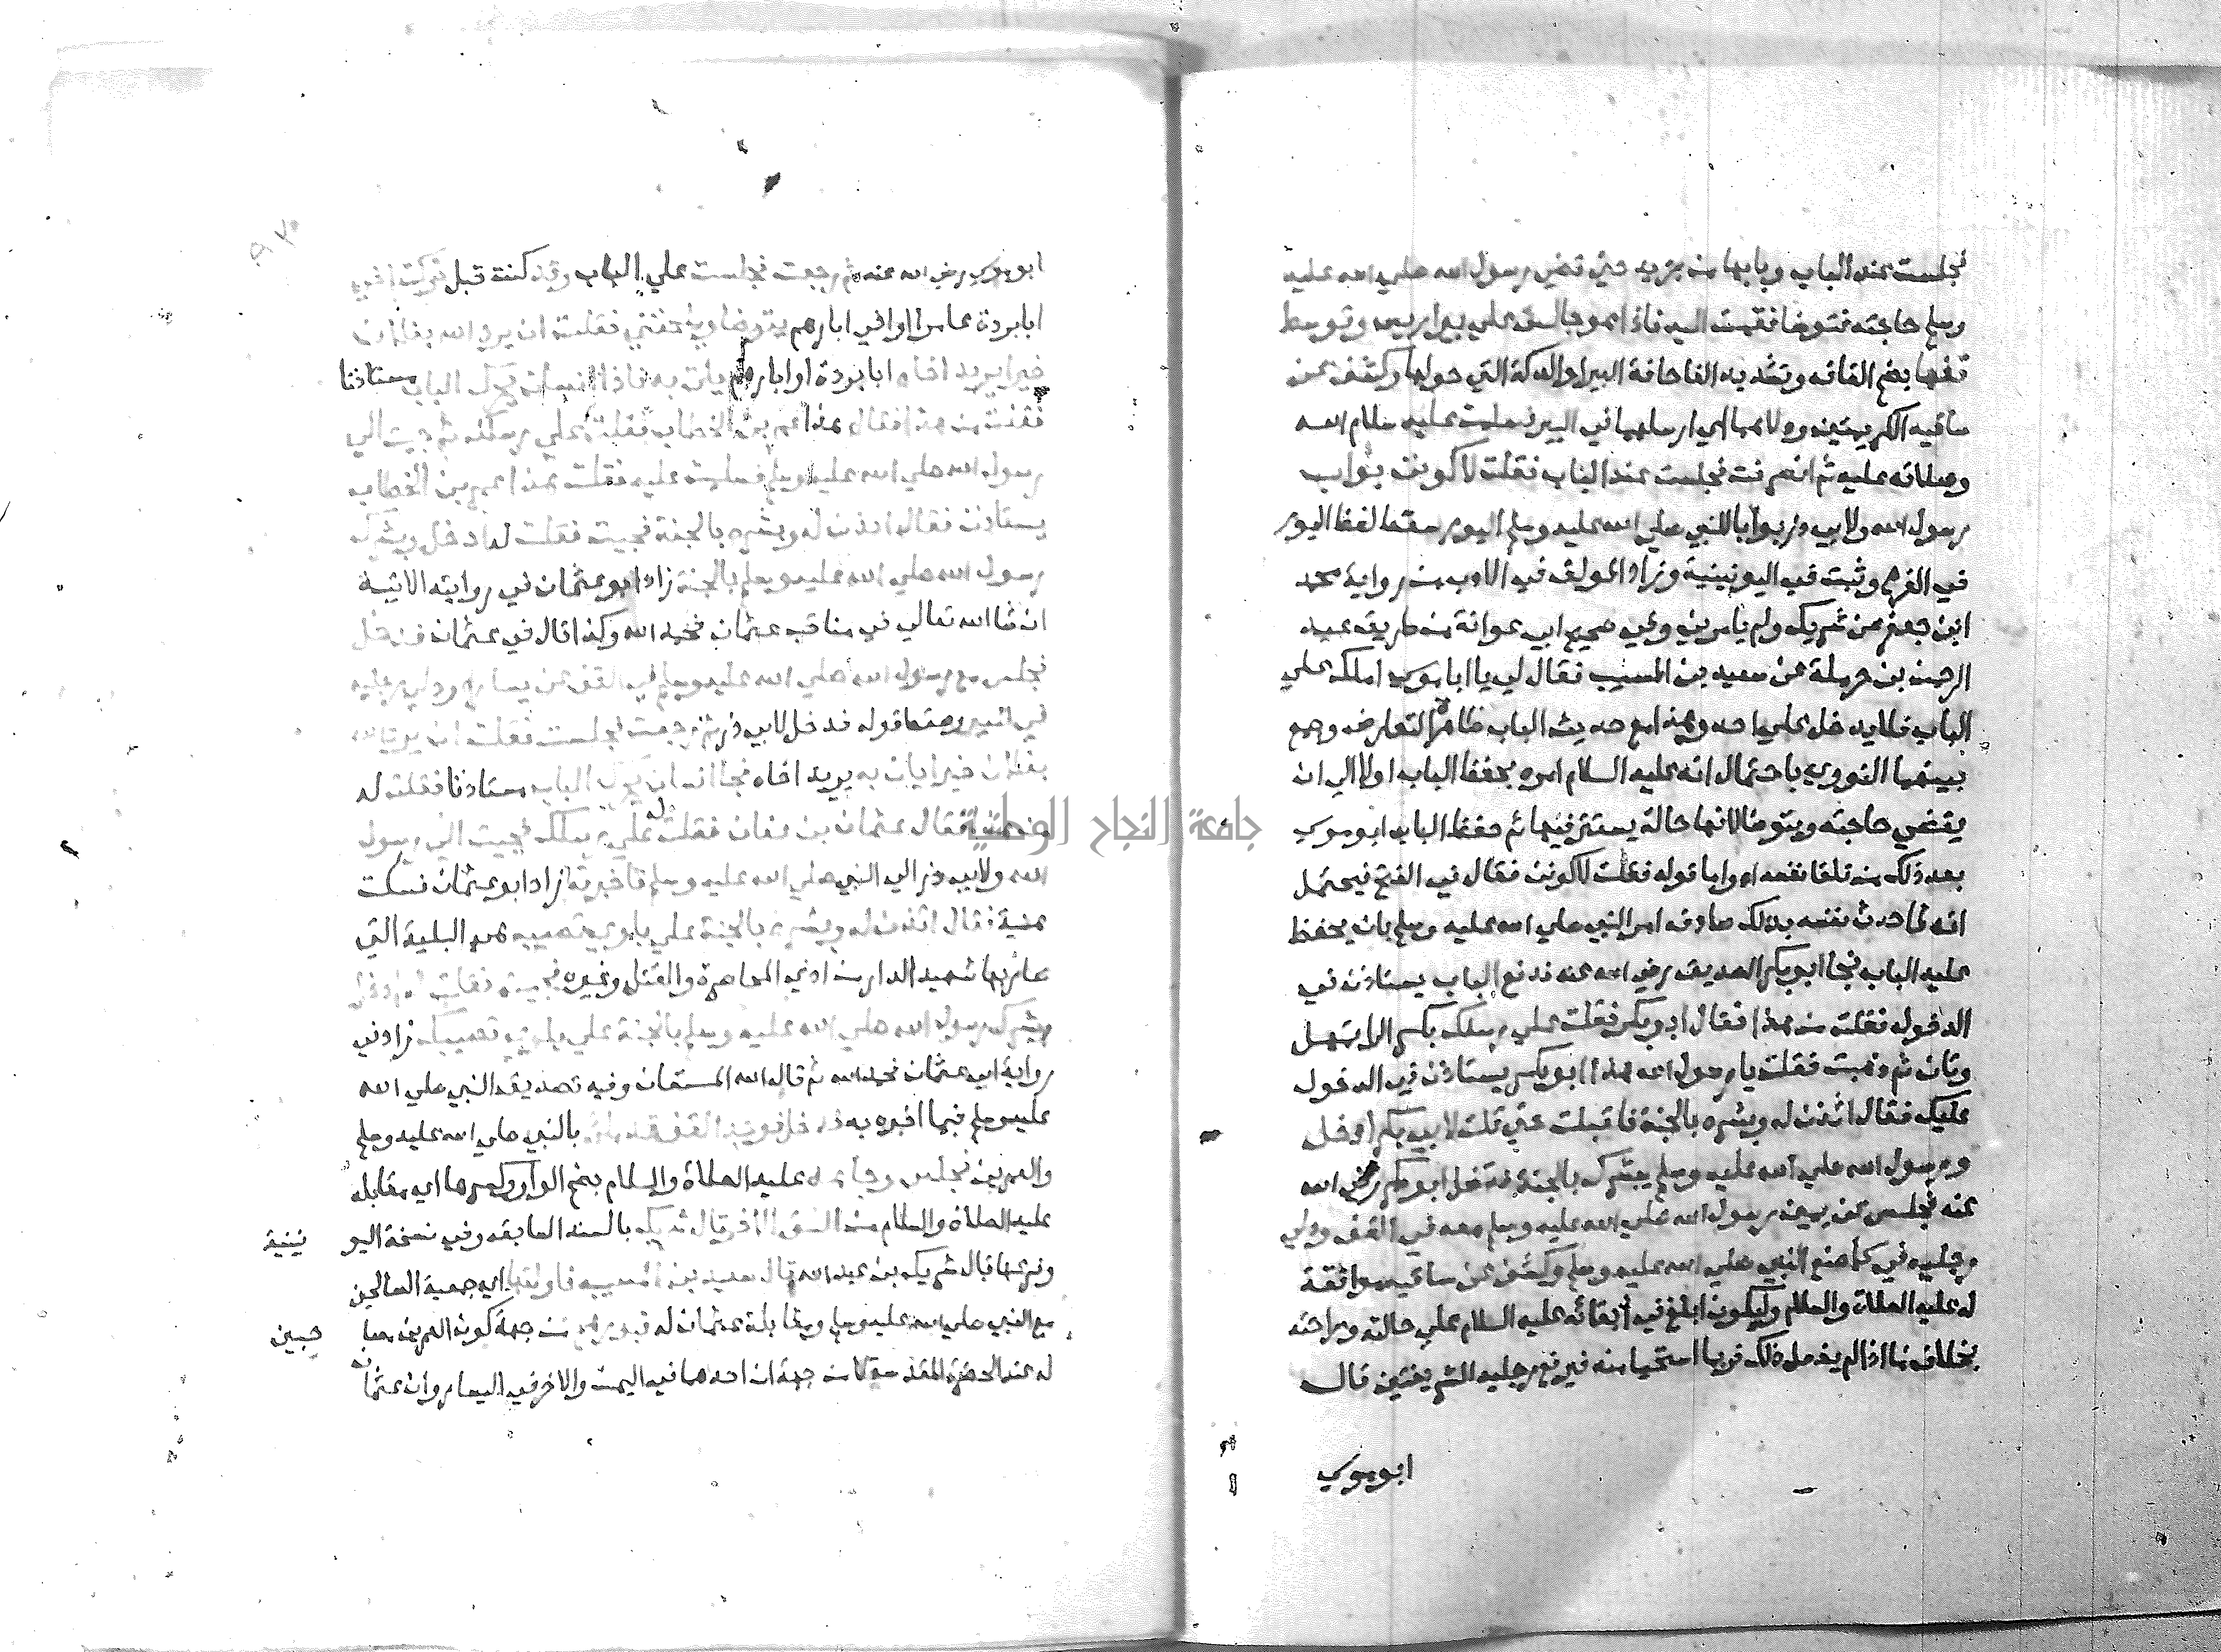 فجلست عند الباب وبابها من جريد حتى قضى رسول الله صلى الله عليه
وسلم حاجته فتوضا فقمت اليه فاذا هو جالس على بير اريس وتوسط
قفها بضم القاف وتشديد الفا حافة البير او الدكة التي حولها وكشف عن
ساقيه الكريمتين ودلاهما اي ارسلهما في البير فسلمت عليه سلام الله
وصلاته عليه ثم انصرفت فجلست عند الباب فقلت لاكونن بواب
رسول الله ولابي ذر بوابا للنبي صلي الله عليه وسلم اليوم سقط لفظ اليوم
في الفرع وثبت في اليونينية وزاد المولف في الادب من رواية محمد
ابن جعفر عن شريك ولم يامرني وفي صحيح ابي عوانة من طريق عبد
الرحمن بن حرملة عن سعيد بن المسيب فقال لي يا ابا موسي املك علي
الباب فلا يدخل علي احد وهذا مع حديث الباب ظاهره التعارض وجمع
بينهما النووي باحتمال انه عليه السلام امره بحفظ الباب اولا الي ان
يقضي حاجته ويتوضا لانها حالة يستتر فيها ثم حفظ الباب ابو موسي
بعد ذلك من تلقا نفسه اه واما قوله فقلت لاكونن فقال في الفتح فيحتمل
انه لما حدث نفسه بذلك صادف امر النبي صلي الله عليه وسلم بان يحفظ
عليه الباب فجا ابو بكر الصديق رضي الله عنه فدفع الباب يستاذن في
الدخول فقلت من هذا فقال ابو بكر فقلت علي رسلك بكسر الرا تمهل
وتان ثم ذهبت فقلت يا رسول الله هذا ابو بكر يستاذن في الدخول
عليك فقال ائذن له وبشره بالجنة فاقبلت حتي قلت لابي بكر ادخل
ورسول الله صلي الله عليه وسلم يبشرك بالجنة فدخل ابو بكر رضي الله
عنه فجلس عن يمين رسول الله صلي الله عليه وسلم معه في القف ودلي
رجليه في كما صنع النبي صلي الله عليه وسلم وكشف عن ساقيه موافقة
له عليه الصلاة والسلام وليكون ابلغ في ابقائه عليه السلام علي حالته وراحته
بخلاف ما اذا لم يفعل ذلك فربما استحيا منه فيرفع رجليه الشريفتين قال
ابو موسي
ابو موسي رضي الله عنه ثم رجعت فجلست علي الباب وقد كنت قبل تركت اخي
ابا بردة عامرا او اخي ابا رهم يتوضا ويلحقني فقلت ان يرد الله بفلان
خيرا يريد اخاه ابا بردة او ابا رهم يات به فاذا انسان يحرك الباب مستاذنا
فقلت من هذا فقال هذا عمر بن الخطاب فقلت علي رسلك ثم جيت الي
رسول الله صلي الله عليه وسلم فسلمت عليه فقلت هذا عمر بن الخطاب
يستاذن فقال ائذن له وبشره بالجنة فجيت فقلت له ادخل وبشرك
رسول الله صلي الله عليه وسلم بالجنة زاد ابو عثمان في روايته الاتية
ان شا الله تعالي في مناقب عثمان فحمد الله وكذا قال في عثمان فدخل
فجلس مع رسول الله صلي الله عليه وسلم في القف عن يساره ودلي رجليه
في البير سقط قوله فدخل لابي ذر ثم رجعت فجلست فقلت ان يرد الله
بفلان خيرا يات به يريد اخاه فجا انسان يحرك الباب مستاذنا فقلت له
من هذا فقال عثمان بن عفان فقلت له علي رسلك فجيت الي رسول
الله ولابي ذر الي النبي صلي الله عليه وسلم فاخبرته زاد ابو عثمان فسكت
هنية فقال ائذن له وبشره بالجنة علي بلوي تصيبه هي البلية التي
صار بها شهيد الدار من اذي المحاصرة والقتل وغيره فجيته فقلت له ادخل
وبشرك رسول الله صلي الله عليه وسلم بالجنة علي بلوي تصيبك زاد في
رواية ابي عثمان فحمد الله ثم قال الله المستعان وفيه تصديق النبي صلي الله
عليه وسلم فيما اخبره به فدخل فوجد القف قد ملئ بالنبي صلي الله عليه وسلم
والعمرين فجلس وجاهه عليه الصلاة والسلام بضم الواو وكسرها اي مقابله
عليه الصلاة والسلام من الشق الاخر قال شريك بالسند السابق وفي نسخة اليو نينية
وفرعها قال شريك بن عبد الله قال سعيد بن المسيب فاولتها اي جمعية الصاحبين
مع النبي صلي الله عليه وسلم ومقابلة عثمان له قبورهم من جهة كون العمرين مصا حبين
له عند الحضرة المقدسة لا من جهة ان احدهما في اليمين والاخر في اليسار وان عثمان
جامعة النجاح الوطنية